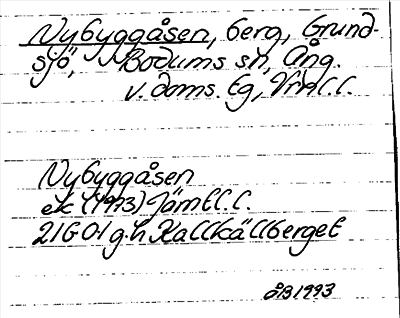 Nybyggåsen, berg, Grund-
sjö, Bodums sn, Ång.
v. doms. bg, Vrml.l.
Nybyggåsen
ek (1973) Jämtl. l.
21G 01 g.h Kallkällberget
ÅB 1993